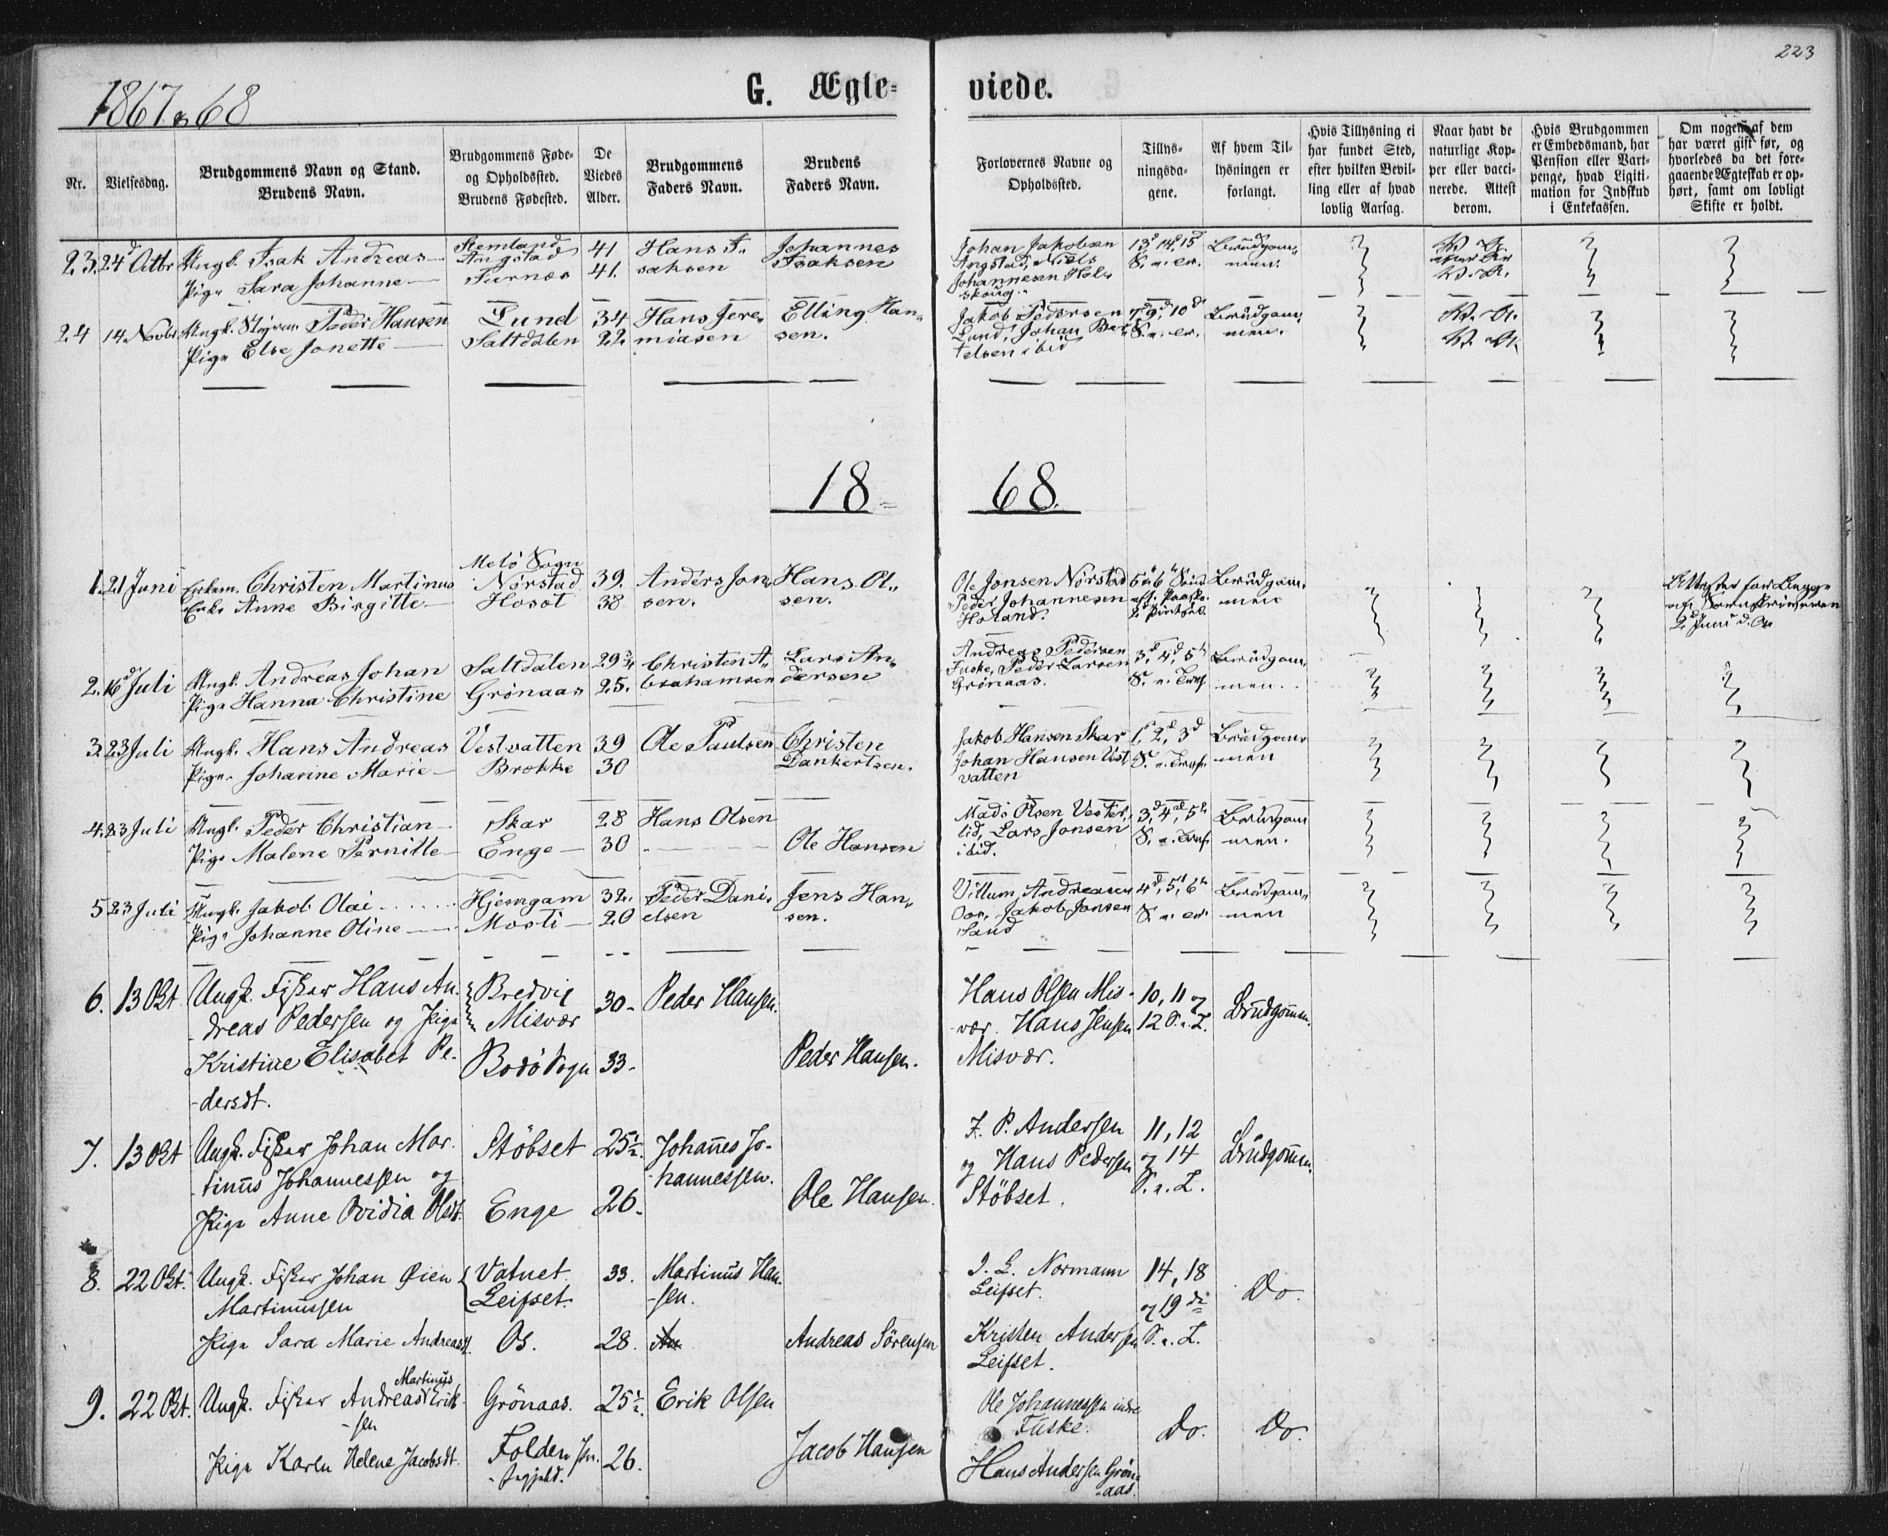 223
1867 & 68
G. Ægte= viede.
Nr.
Vielsesdag.
Brudgommens Navn og Stand.
Brudens Navn.
Brudgommens Føde-
og Opholdssted.
Brudens Fødested.
De
Viedes
Alder.
Brudgommens
Faders Navn.
Brudens
Faders Navn.
Forlovernes Navne og
Opholdssted.
Tillys-
ningsda-
gene.
Af hvem Til-
lysningen er
forlangt.
Hvis Tillysning ei
har fundet Sted,
efter hvilken Bevil-
ling eller af hvad
lovlig Aarsag.
Naar havt de
naturlige Kop-
per eller vacci-
nerede. Attest
derom.
Hvis Brudgommen
er Embedsmand, har
Pension eller Vart-
penge, hvad Ligiti-
mation for Indskud
i Enkekassen.
Om nogen af dem
har været gift før, og
hvorledes da det fore-
gaaende Ægteskab er op-
hørt, samt om lovligt
Skifte er holdt.
23. 24d Octbr Ungk. Isak Andreas
Pige Sara Johanne
Angstad
41
41.
Hans I-
saksen
Johannes
Isaksen
Johan Jakobsen
Angstad, Niels
Johannesen Hol-
skoug.
13d 14d 15d
S. e. Tr.
Brudgom-
men.
24 14 Novbr Ungk. Peder Hansen
Pige Else Jonette
Lund
Saltdalen
34
22.
Hans Jere-
miasen
Elling Han-
sen.
Jakob Pedersen
Lund, Johan Ber-
telsen ibid
7d 9d, 10d
S. e. Tr.
Brudgom-
men.
18=68.
1. 21 Juni Enkem. Christen Martinus
Enke Anne Birgitte
Melö Sogn
Nörstad
Hosöt
39.
38
Anders Jon-
sen.
Hans Ol-
sen.
Ole Jonsen Nörstad
Peder Johannesen
Holand.
Brudgom-
men
2 Juni d. A.
2. 16d Juli Ungk. Andreas Johan
Pige Hanna Christine
Saltdalen
Grönaas
25.
Christen A-
brahamsen
Lars An-
dersen
Andreas Pedersen
Fuske, Peder Larsen
Grönaas.
3d, 4d, 5te
Brudgom-
men.
3. 23 Juli Ungk. Hans Andreas
Pige Johanne Marie
Vestvatten
Brokke
39
30
Ole Paulsen
Christen
Dankertsen.
Jakob Hansen Skar
Johan Hansen Vest-
vatten
1, 2d, 3d
Brudgom-
men
4. 23 Juli Ungk. Peder Christian
Pige Malene Pernille
Skar
Enge
28
30
Hans Olsen
Ole Hansen
Mads Olsen Vester-
lid, Lars Jonsen
ibid.
3d, 4de, 5te
Brudgom-
men.
5 23 Juli Ungk. Jakob Olai
Pige Johanne Oline
Hjemgam
Mosti
32.
20
Peder Dani-
elsen
Jens Han-
sen.
Villum Andreasen
Os, Jakob Jonsen
Sand
4d, 5te, 6te
Brudgom-
men
6. 13 Okt Ungk. Fisker Hans An-
dreas Pedersen og Pige
Kristine Elisabet Pe-
dersdt.
Bredvig
Misvær
Bodö Sogn
30-
33-
Peder Hansen.
Peder Hansen.
Hans Olsen Mis-
vær. Hans Jensen
Misvær.
10, 11 og
12 S. e. T.
Brudgomm.
7. 13 Okt Ungk. Fisker Johan Mar-
tinus Johannessen og
Pige Anne Ovidia Olsdt.
Stöbset
Enge
25½
26.
Johannes Jo-
hannessen.
Ole Hansen.
P. Andersen
og Hans Pedersen
Stöbset.
11, 12
og 14
S. e. T.
Brudgomm.
8. 22 Okt. Ungk. Fisker Johan Öien
Martinussen
Pige Sara Marie Andreasd.
Vatnet
Leifset.
Os.
33.
28.
Martinus Han-
sen.
Andreas Sörensen
J. L. Normann
Leifset.
Kristen Andersen
Leifset.
14, 18
og 19de
S. e. T.
Do.
9. 22 Okt. Ungk. Fisker Andreas Martinus Erik-
sen
Pige Karen Helene Jacobsdt.
Grönaas.
Folden
25½
26.
Erik Olsen
Jacob Hansen
Ole Johannessen indre
Fuske.
Hans Andersen Grön-
aas.
Do.
Do.